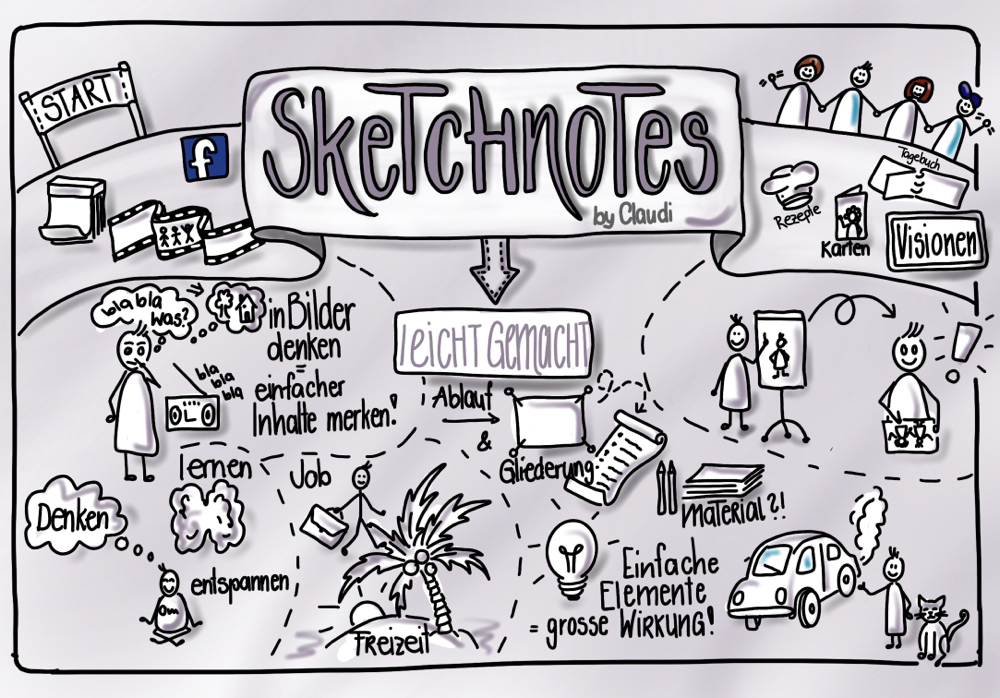 START
f
SkeTCHnoTes
by Claudi
Tagebuch
Rezepte
Karten
Visionen
bla bla
was?
in Bilder
denken
=
einfacher
Inhalte merken!
bla
bla
bla
leicht Gemacht
Ablauf
&
Gliederung
lernen
Denken
entspannen
Om
Job
FReizeit
Material?!
Einfache
Elemente
= grosse WIRKUNG!